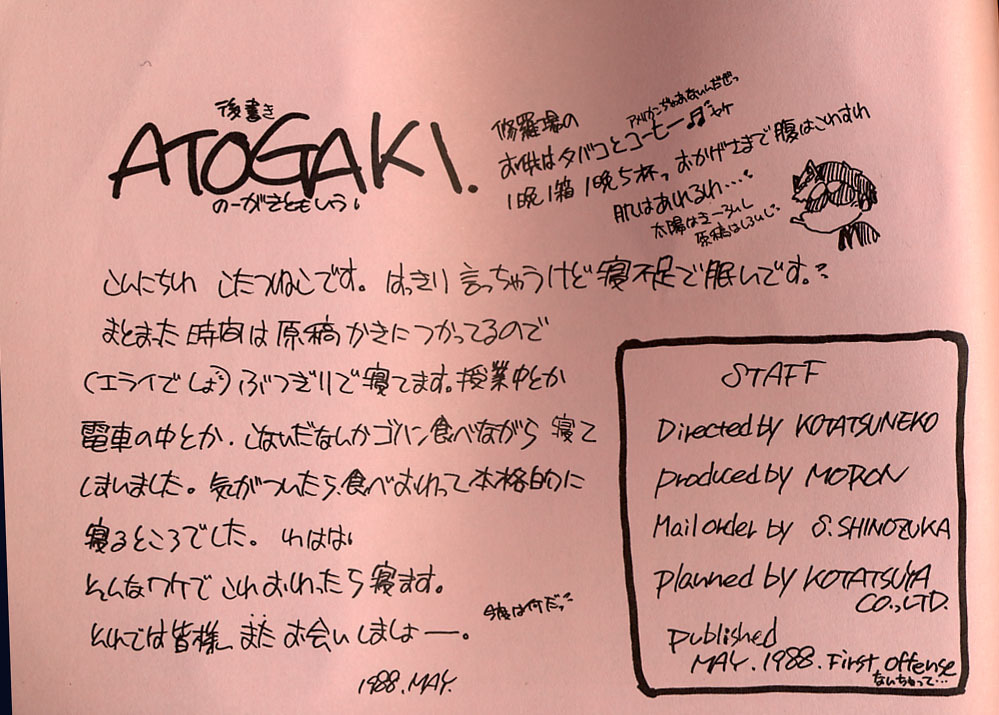 後書き
ATOGAKI.
のーがきともいう。
修羅場の
お供はタバコとコーヒー♬
アメリカンじゃあないんだぜっ
1晩1箱 1晩5杯っ おかげさまで腹はこわすわ
肌はあれるわ…
太陽はきーろいし
原稿はしろいし。
こんにちわ こたつねこです。はっきり言っちゃうけど寝不足で眠いです。
まとまった時間は原稿かきにつかってるので
(エライでしょ)ぶつぎりで寝てます。授業中とか
電車の中とか. こないだなんかゴハン食べながら寝て
しまいました。気がついたら、食べおわって本格的に
寝るところでした。わはは
そんなワケでこれおわったら寝ます。
今度は何だっ
それでは皆様、またお会いしましょーー。
1988.MAY.
STAFF
Directed by KOTATSUNEKO
produced by MORON
Mail order by S.SHINOZUKA
planned by KOTATSUYA
CO.,LTD.
published
MAY.1988.First offense
なんちゃって…